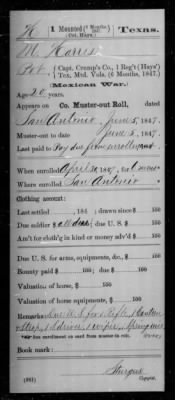 H | 1 Mounted (6 Months/1847.) | Texas.
(Col. Hays.)
M. Harris
Pvt., (Capt. Crump's Co., 1 Reg't (Hays')
Tex. Mtd. Vols. (6 Months, 1847.)
(Mexican War.)
Age 20 years.
Appears on
Co. Muster-out Roll, dated
San Antonio, June 5, 1847.
Muster-out to date June 5, 1847.
Last paid to Pay due from enrollment
When enrolled April 30, 1847,
Where enrolled San Antonio
Clothing account:
Last settled , 184 ; drawn since $ 100
Due soldier $ 100; due U. S. $ 100
Am't for cloth'g in kind or money adv'd $ 100
Due U. S. for arms, equipments, &c., $ 100
Bounty paid $ 100; due $ 100
Valuation of horse, $ 100
Valuation of horse equipments, $ 100
Remarks: Due U. S. for 1 Rifle, 1 Canteen
& Strap, 1 S. driver, 1 wiper, 1 Spring vice
*See enrollment on card from muster-in roll.
Book mark:
Sturgus
(261) Copyist.